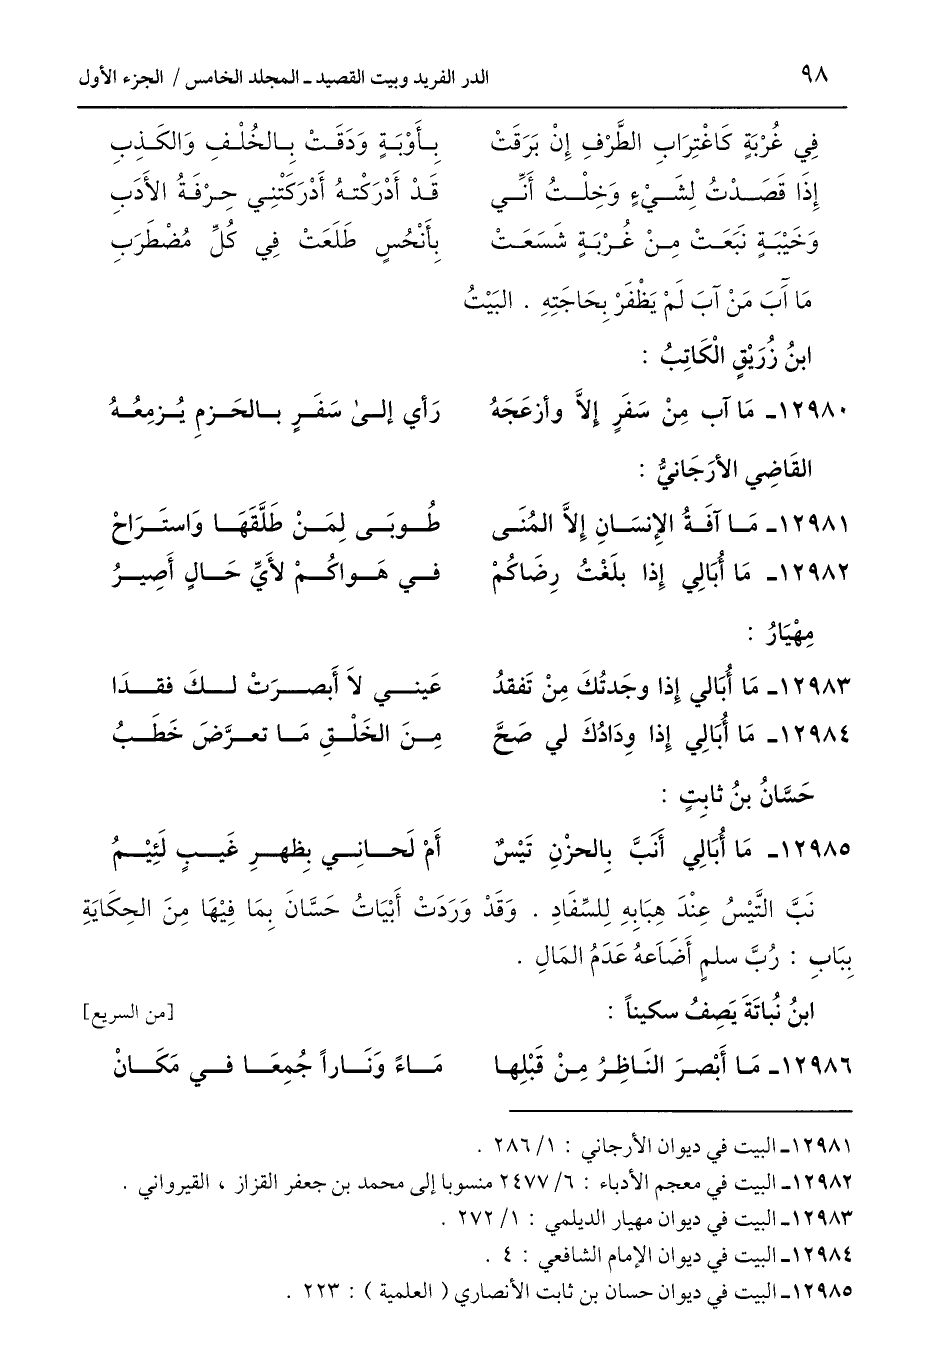 ٩٨ الدر الفريد وبيت القصيد ـ المجلد الخامس / الجزء الأول
فِي غُرْبَةٍ كَاغْتِرَابِ الطَّرْفِ إِنْ بَرَقَتْ بِأَوْبَةٍ وَدَقَتْ بِالخُلْفِ وَالكَذِبِ
إِذَا قَصَدْتُ لِشَيْءٍ وَخِلْتُ أَنِّي قَدْ أَدْرَكْتهُ أَدْرَكَتْنِي حِرْفَةُ الأَدَبِ
وَخَيْبَةٍ نَبَعَتْ مِنْ غُرْبَةٍ شَسَعَتْ بِأَنْحُسٍ طَلَعَتْ فِي كُلِّ مُضْطَرَبِ
مَا آبَ مَنْ آبَ لَمْ يَظْفَرْ بِحَاجَتِهِ . البَيْتُ
ابنُ زُرَيْقٍ الْكَاتِبُ :
١٢٩٨٠ـ مَا آب مِنْ سَفَرٍ إِلاَّ وأزعَجَهُ رَأي إلىٰ سَفَرٍ بالحَزمِ يُزمِعُهُ
القَاضِي الأرَجَانيُّ :
١٢٩٨١ـ مَا آفَةُ الإنسَانِ إلاَّ المُنَى طُوبَى لِمَنْ طَلَّقَهَا وَاستَرَاحْ
١٢٩٨٢ـ مَا أُبَالِي إذا بلَغْتُ رِضَاكُمْ فِي هَواكُمْ لأيِّ حَالٍ أصِيرُ
مِهْيَارُ :
١٢٩٨٣ـ مَا أُبَالي إذَا وجَدتُكَ مِنْ تَفقدُ عَينِي لاَ أبصَرَتْ لكَ فقدَا
١٢٩٨٤ـ مَا أُبَالِي إذا وِدَادُكَ لي صَحَّ مِنَ الخَلْقِ مَا تعرَّضَ خَطَبُ
حَسَّانُ بنُ ثابِتٍ :
١٢٩٨٥ـ مَا أُبَالِي أَنَبَّ بالحزْنِ تَيْسٌ أَمْ لَحانِي بِظهرِ غَيبٍ لَئِيْمُ
نَبَّ التَّيْسُ عِنْدَ هِبَابِهِ لِلسِّفَادِ . وَقَدْ وَرَدَتْ أَبْيَاتُ حَسَّانَ بِمَا فِيْهَا مِنَ الحِكَايَةِ
بِبَابِ : رُبَّ سلمٍ أَضَاعهُ عَدَمُ المَالِ .
ابنُ نُبَاتَةَ يَصِفُ سكيناً : [من السريع]
١٢٩٨٦ـ مَا أَبْصرَ النَاظِرُ مِنْ قَبْلِها مَاءً وَنَاراً جُمِعَا فِي مَكَانْ
١٢٩٨١ـ البيت في ديوان الأرجاني : ١/ ٢٨٦ .
١٢٩٨٢ـ البيت في معجم الأدباء : ٦/ ٢٤٧٧ منسوبا إلى محمد بن جعفر القزاز ، القيرواني .
١٢٩٨٣ـ البيت في ديوان مهيار الديلمي : ١/ ٢٧٢ .
١٢٩٨٤ـ البيت في ديوان الإمام الشافعي : ٤ .
١٢٩٨٥ـ البيت في ديوان حسان بن ثابت الأنصاري ( العلمية ) : ٢٢٣ .